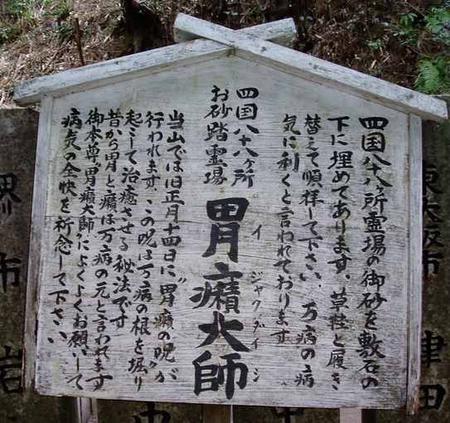 四国八十八ヶ所霊場の御砂を敷石の
下に埋めてあります。草鞋と履き
替えて順拝して下さい。万病の病
気に利くと言われております
四国八十八ヶ所
お砂踏霊場
胃癪大師
イジャクダイシ
当山では旧正月十四日に〝胃癪の呪〟が
行われます。この呪は万病の根を堀り
起こして治癒させる秘法です
昔から胃と癪は万病の元と言われます
御本尊胃癪大師によくよくお願いして
病気の全快を祈念して下さい。
東大阪市 津田
堺市 岩